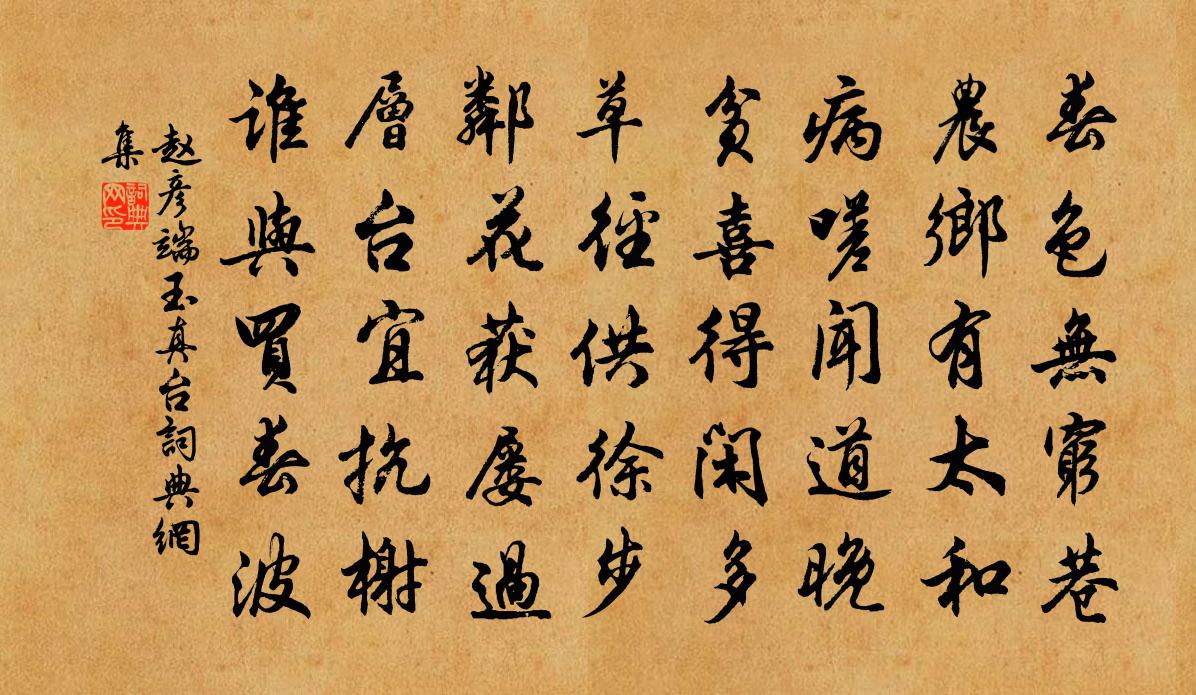 春色無窮巷
農鄉有太和
病嗟聞道晚
貧喜得閑多
草徑供徐步
鄰花获屡過
層台宜抗榭
誰與買春波
赵彦端玉真台詞典網
集
詞典网印